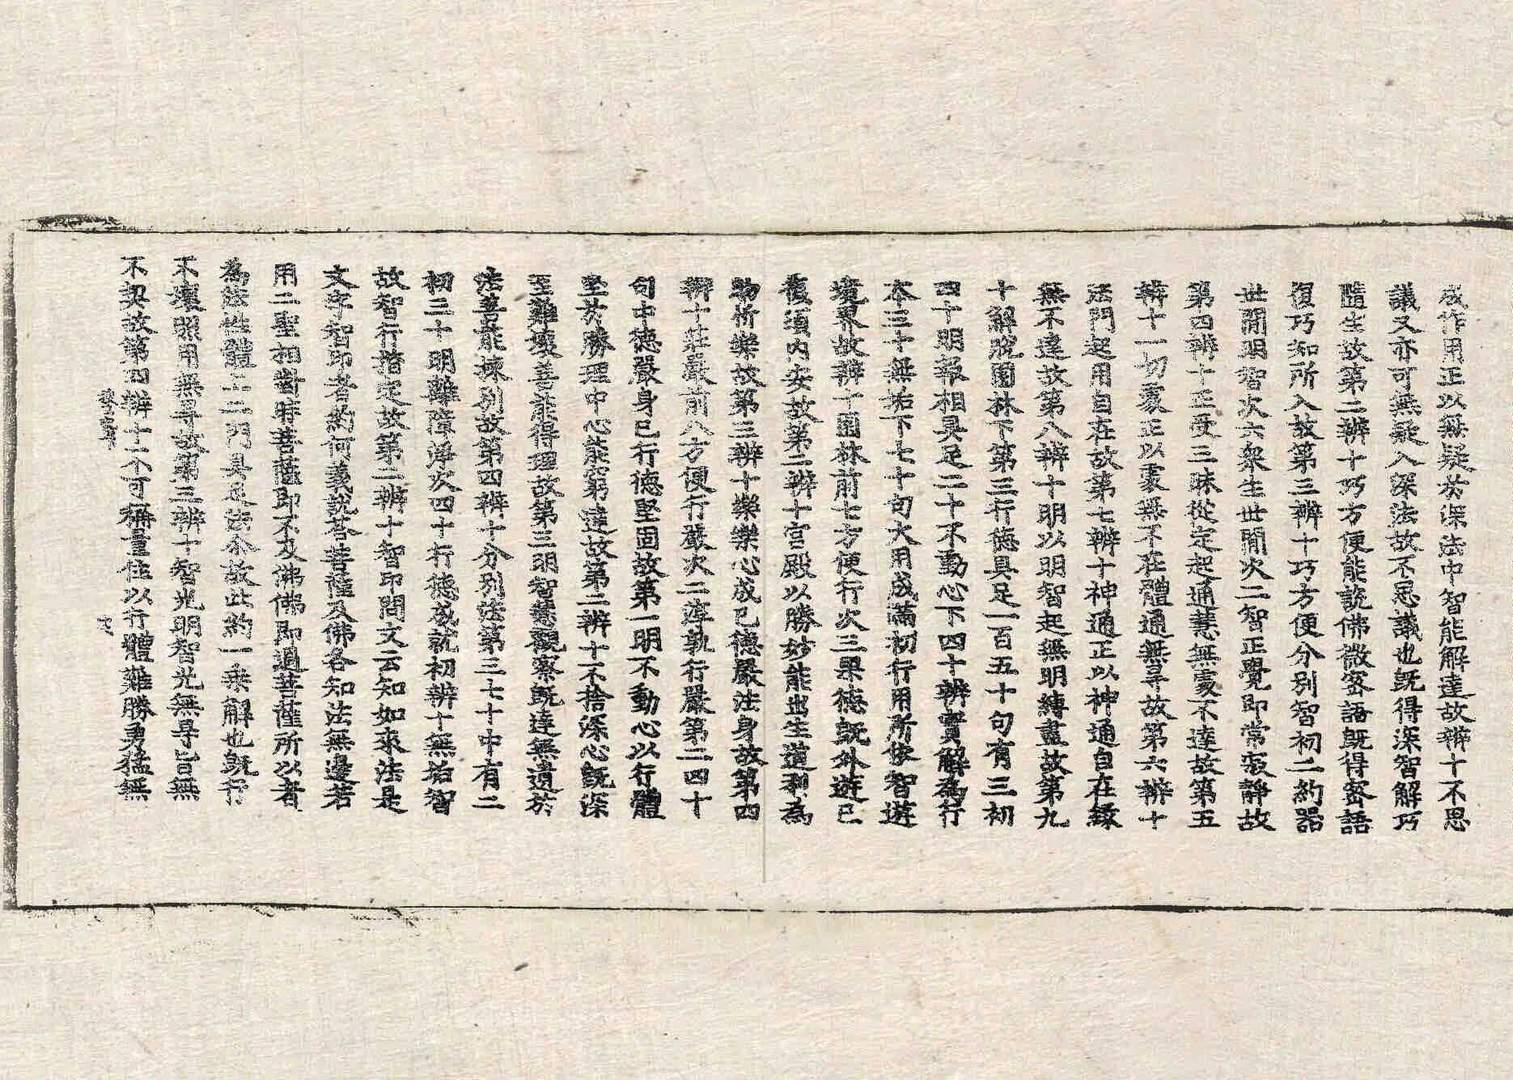 成作用正以無疑於深法中智能解達故辨十不思
議又亦可無疑入深法故不思議也旣得深智解巧
隨生故第二辨十巧方便能說佛微密語旣得密語
復巧知所入故第三辨十巧方便分別智初二約器
世間明智次六衆生世間次二智正覺即常寂靜故
第四辨十正受三昧從定起通慧無處不達故第五
辨十一切處正以處無不在體通無㝵故第六辨十
法門起用自在故第七辨十神通正以神通自在緣
無不達故第八辨十明以明智起無明縛盡故第九
十解脫園林下第三行德具足一百五十句有三初
四十明報相具足二十不動心下四十辨實解為行
本三十無垢下七十句大用成滿初行用所依智遊
境界故辨十園林前七方便行次三果德旣外遊已
復須內安故第二辨十宮殿以勝妙能出生道利為
物所樂故第三辨十樂樂心成已德嚴法身故第四
辨十莊嚴前八方便行嚴次二淳熟行嚴第二四十
句中德嚴身已行德堅固故第一明不動心以行體
堅於勝理中心能窮達故第二辨十不捨深心旣深
至難壞善能得理故第三明智慧觀察旣達無遺於
法善能揀別故第四辨十分別法第三七十中有二
初三十明離障淨次四十行德成就初辨十無垢智
故智行揩定故第二辨十智印問文云知如來法是
文字智印者約何義說荅菩薩及佛各知法無邊若
用二聖相對時菩薩即不及佛佛即過菩薩所以者
為法性體十二門具足法尒故此約一乘解也旣行
不壞照用無㝵故第三辨十智光明智光無㝵旨無
不契故第四辨十不可稱量住以行體難勝勇猛無